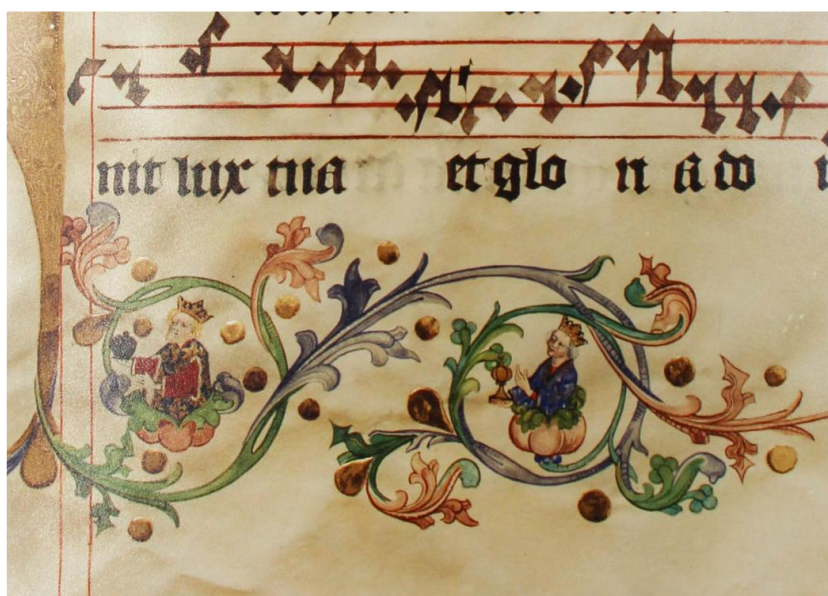 nit lux tua et glo ri a do